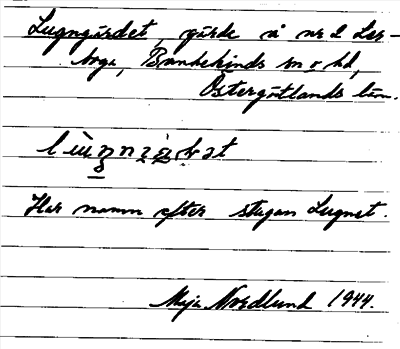 Lugngärdet, gärde å nr 2 Ler-
berga, Bankekinds sn o hd,
Östergötlands län.
Har namn efter stugan Lugnet.
Maja Nordlund 1944.